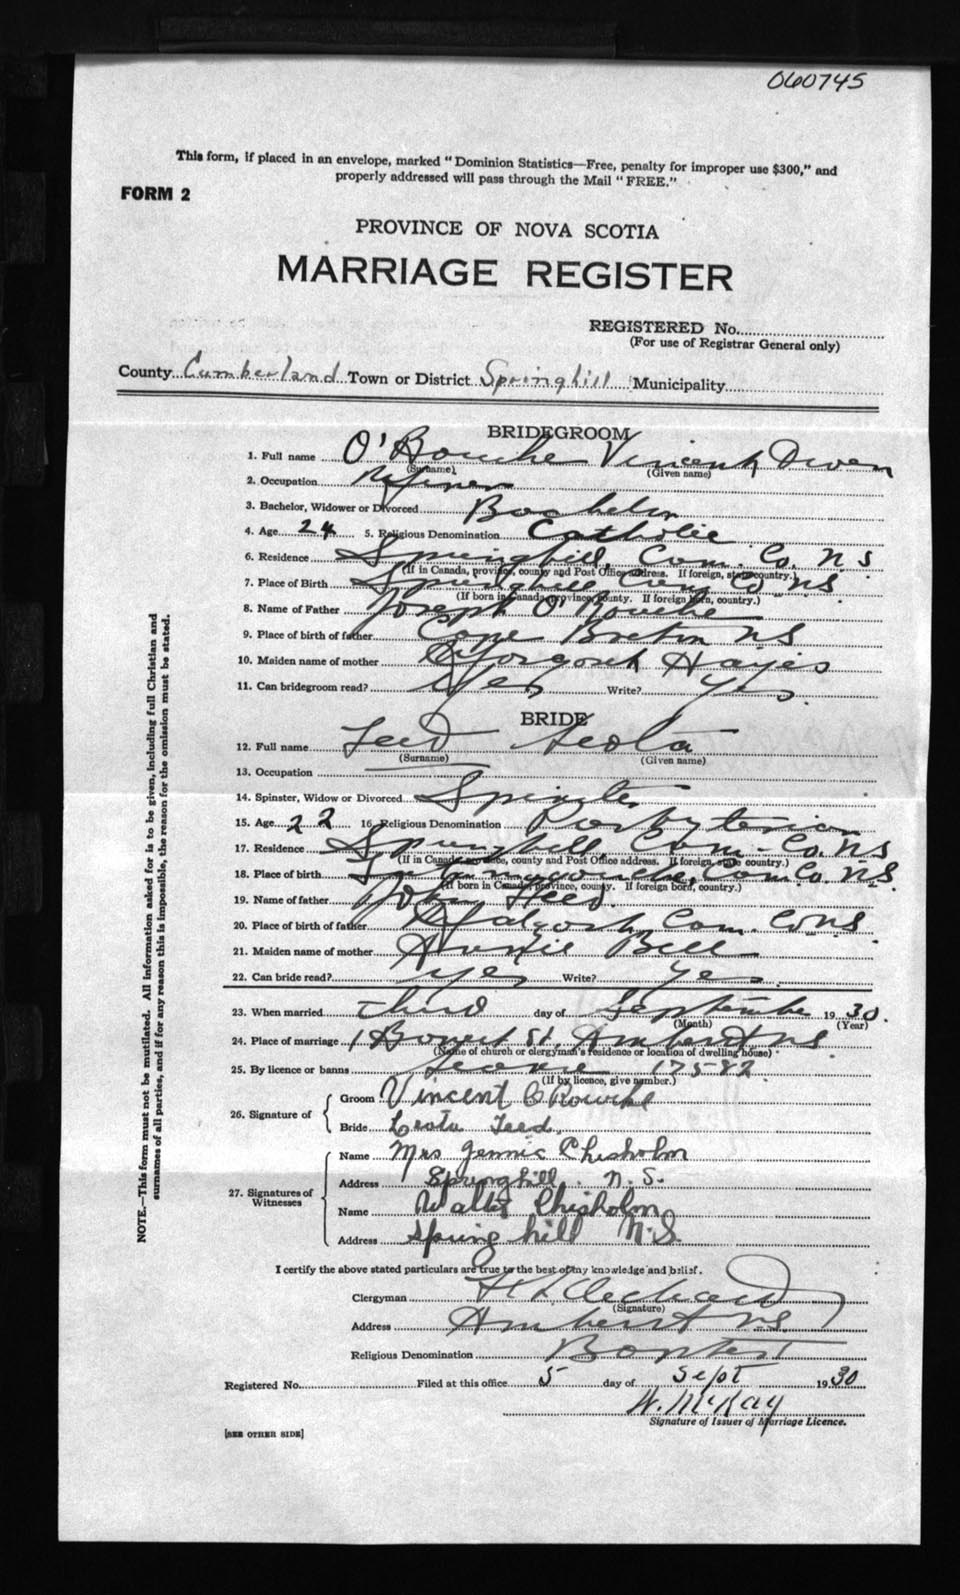 060745
This form, if placed in an envelope, marked "Dominion Statistics—Free, penalty for improper use $300," and
properly addressed will pass through the Mail "FREE."
FORM 2
PROVINCE OF NOVA SCOTIA
MARRIAGE REGISTER
REGISTERED No.
(For use of Registrar General only)
County Cumberland Town or District Springhill Municipality
BRIDEGROOM
1. Full name O'Rourke Vincent Owen
(Surname) (Given name)
2. Occupation
3. Bachelor, Widower or Divorced Bachelor
4. Age 24 5. Religious Denomination Catholic
6. Residence Springhill, Cum. Co. N S
(If in Canada, province, county and Post Office address. If foreign, state country.)
7. Place of Birth Springhill Cum Co NS
(If born in Canada, province, county. If foreign born, country.)
8. Name of Father Joseph O'Rourke
9. Place of birth of father Cape Breton NS
10. Maiden name of mother Margaret Hayes
11. Can bridegroom read? Yes Write? Yes
BRIDE
12. Full name Teed Leota
(Surname) (Given name)
13. Occupation
14. Spinster, Widow or Divorced Spinster
15. Age 22 16. Religious Denomination Presbyterian
17. Residence Springhill, Cum. Co. NS
(If in Canada, province, county and Post Office address. If foreign, state country.)
18. Place of birth Cum Co. N.S.
(If born in Canada, province, county. If foreign born, country.)
19. Name of father John Teed.
20. Place of birth of father Cum. Co NS
21. Maiden name of mother Annie Bell
22. Can bride read? Yes Write? Yes
23. When married Third day of September 1930.
(Month) (Year)
24. Place of marriage 1 St. Amherst N.S.
(Name of church or clergyman's residence or location of dwelling house)
25. By licence or banns License 17582
(If by licence, give number.)
26. Signature of
Groom Vincent O'Rourke
Bride Leota Teed.
27. Signatures of Witnesses
Name Mrs Jennie Chisholm
Address Springhill. N.S.
Name Walter Chisholm
Address Spring hill N.S.
I certify the above stated particulars are true to the best of my knowledge and belief.
Clergyman
(Signature)
Address Amherst N.S.
Religious Denomination Baptist
Registered No. Filed at this office 5 day of Sept 1930
W. McKay
Signature of Issuer of Marriage Licence.
[SEE OTHER SIDE]
NOTE.—This form must not be mutilated. All information asked for is to be given, including full Christian and
surnames of all parties, and if for any reason this is impossible, the reason for the omission must be stated.